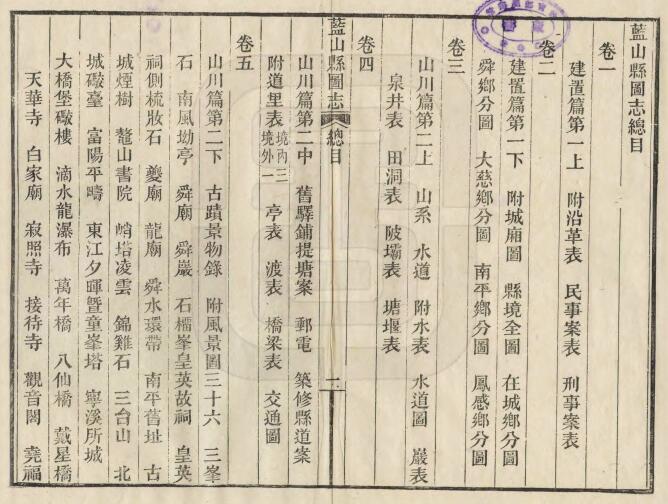 藍山縣圖志總目
卷一
建置篇第一上 附沿革表 民事案表 刑事案表
卷二
建置篇第一下 附城廂圖 縣境全圖 在城鄉分圖
舜鄉分圖 大慈鄉分圖 南平鄉分圖 鳳感鄉分圖
卷三
山川篇第二上 山系 水道 附水表 水道圖 巖表
泉井表 田洞表 陂壩表 塘堰表
卷四
藍山縣圖志 總目 一
山川篇第二中 舊驛鋪提塘案 郵電 築修縣道案
附道里表境內三境外一 亭表 渡表 橋梁表 交通圖
卷五
山川篇第二下 古蹟景物錄 附風景圖三十六 三峯
石 南風坳亭 舜廟 舜巖 石櫺峯皇英故祠 皇英
祠側梳妝石 夔廟 龍廟 舜水環帶 南平舊址 古
城煙樹 鼇山書院 峭塔凌雲 錦雞石 三台山 北
城礮臺 富陽平疇 東江夕暉暨童峯塔 寧溪所城
大橋堡礮樓 滴水龍瀑布 萬年橋 八仙橋 戴星橋
天華寺 白家廟 寂照寺 接待寺 觀音閣 堯福